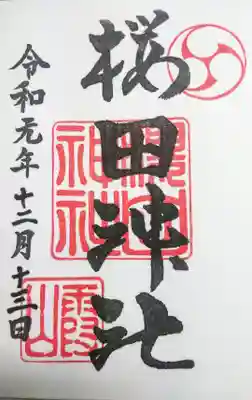 桜田神社
令和元年十二月十三日
櫻田神社
霞山